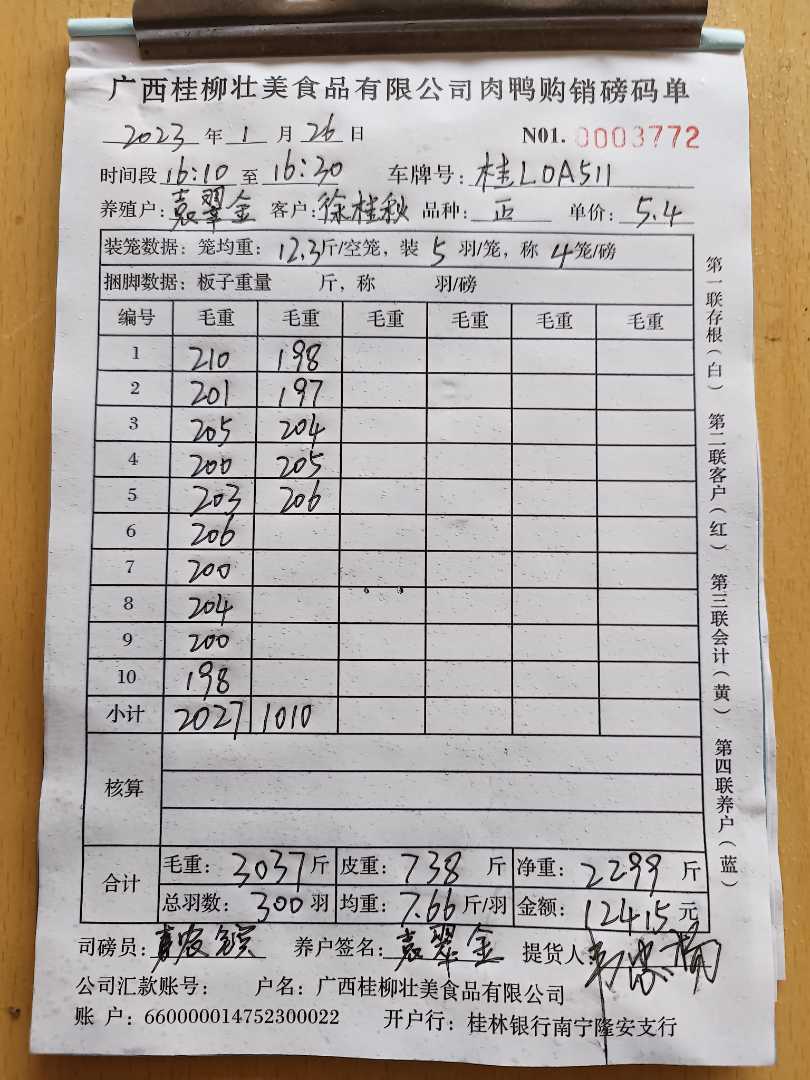 广西桂柳壮美食品有限公司肉鸭购销磅码单
2023 年 1 月 26 日 N01. 0003772
时间段 16:10 至 16:30 车牌号: 桂L0A511
养殖户: 袁翠金 客户: 徐桂秋 品种: 正 单价: 5.4
装笼数据: 笼均重: 12.3斤/空笼, 装 5 羽/笼, 称 4笼/磅
捆脚数据: 板子重量 斤, 称 羽/磅
编号 毛重 毛重 毛重 毛重 毛重 毛重
1 210 198
2 201 197
3 205 204
4 200 205
5 203 206
6 206
7 200
8 204
9 200
10 198
小计 2027 1010
核算
合计 毛重: 3037斤 皮重: 738 斤 净重: 2299 斤
总羽数: 300羽 均重: 7.66斤/羽 金额: 12415元
司磅员: 养户签名: 袁翠金 提货人
公司汇款账号: 户名: 广西桂柳壮美食品有限公司
账 户: 660000014752300022 开户行: 桂林银行南宁隆安支行
第一联存根(白) 第二联客户(红) 第三联会计(黄) 第四联养户(蓝)